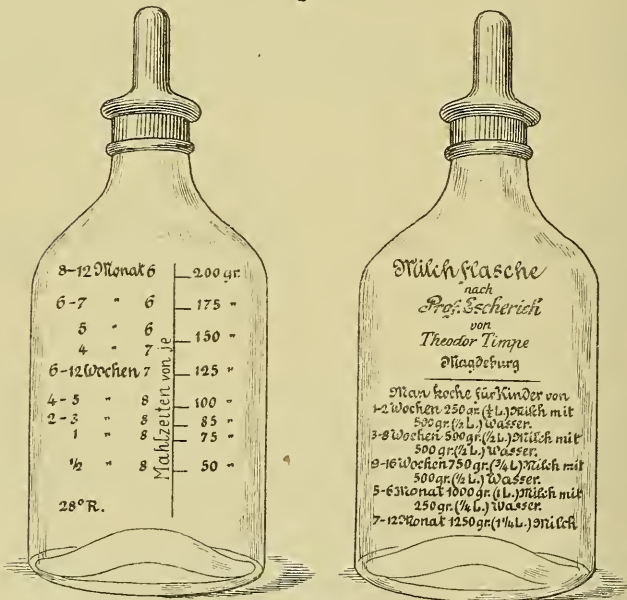 8-12 Monat 6 200 gr.
6-7 " 6 175 "
5 " 6
150 "
4 " 7
6-12 Wochen 7 125 "
4-5 " 8 100 "
2-3 " 8 85 "
1 " 8 75 "
1/2 " 8 50 "
28° R.
Mahlzeiten von je
Milchflasche
nach
Prof. Escherich
von
Theodor Timpe
Magdeburg
Man koche für Kinder von
1-2 Wochen 250 gr. (¼ L.) Milch mit
500 gr. (½ L.) Wasser.
3-8 Wochen 500 gr. (½ L.) Milch mit
500 gr. (½ L.) Wasser.
9-16 Wochen 750 gr. (¾ L.) Milch mit
500 gr. (½ L.) Wasser.
5-6 Monat 1000 gr. (1 L.) Milch mit
250 gr. (¼ L.) Wasser.
7-12 Monat 1250 gr. (1¼ L.) Milch